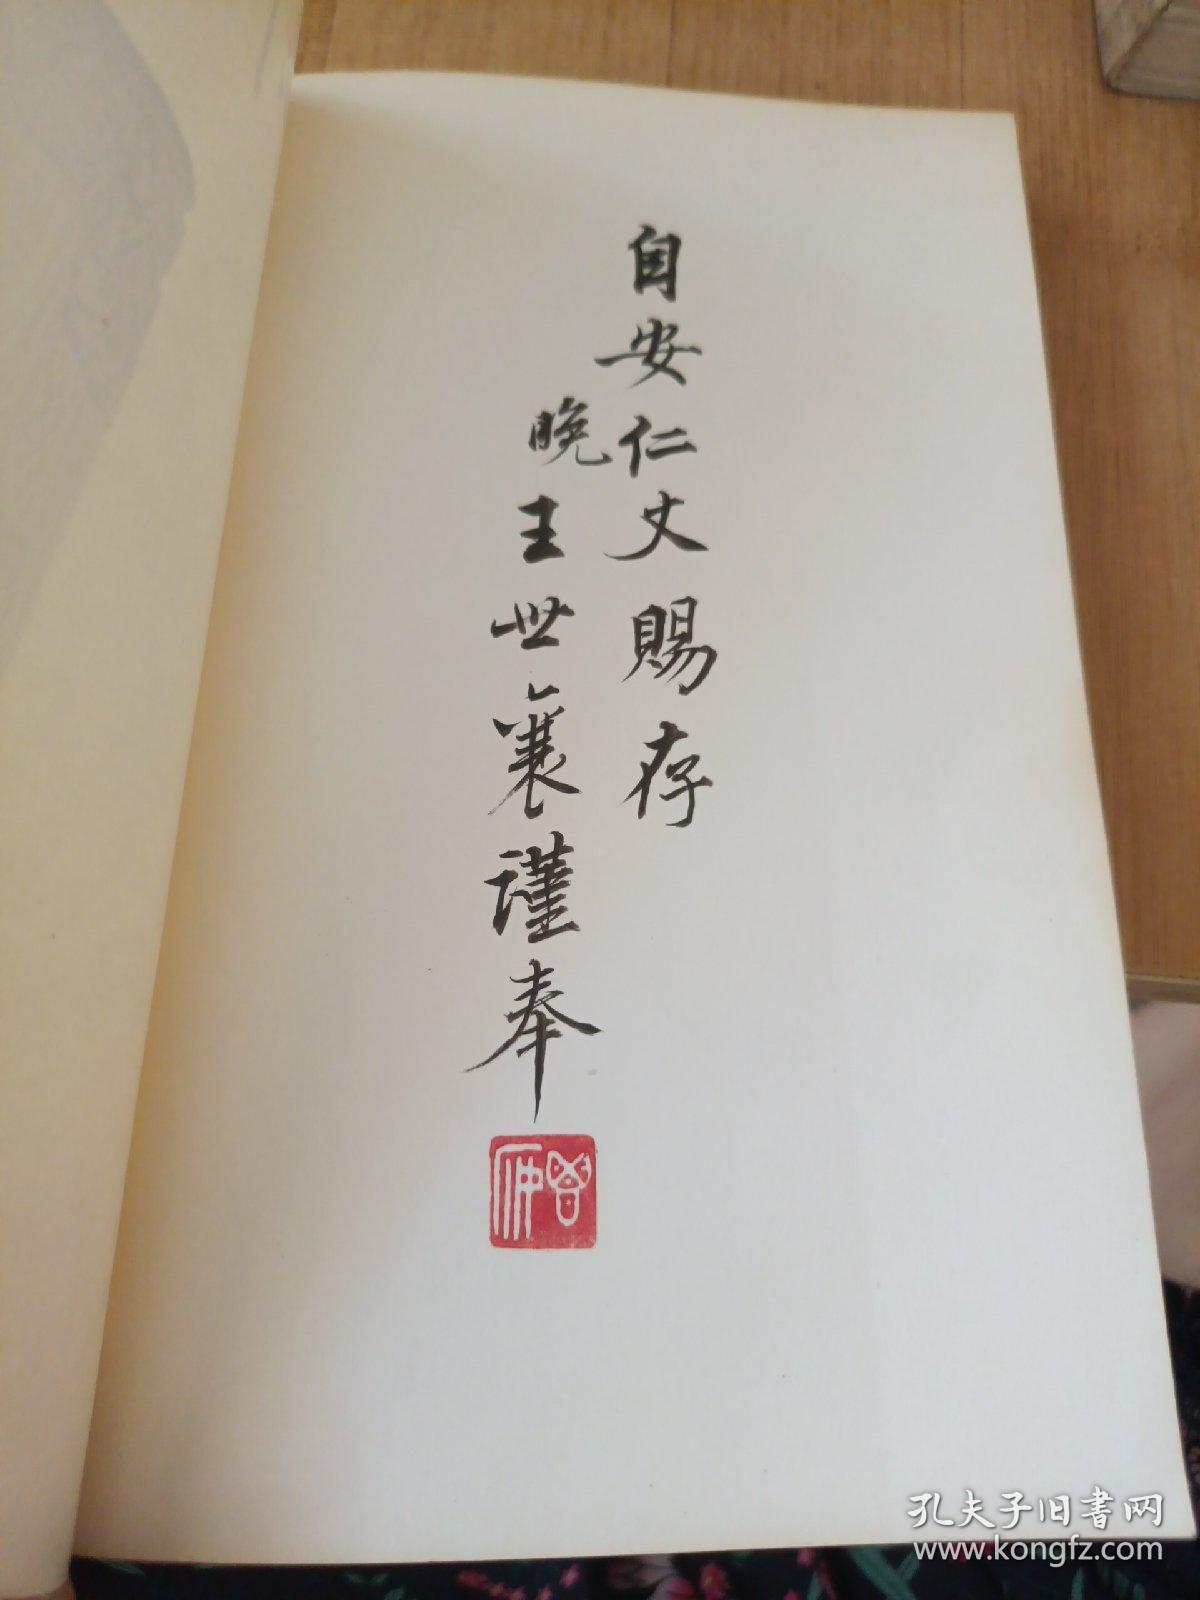 自安仁丈賜存
晚王世襄謹奉
孔夫子旧书网
www.kongfz.com